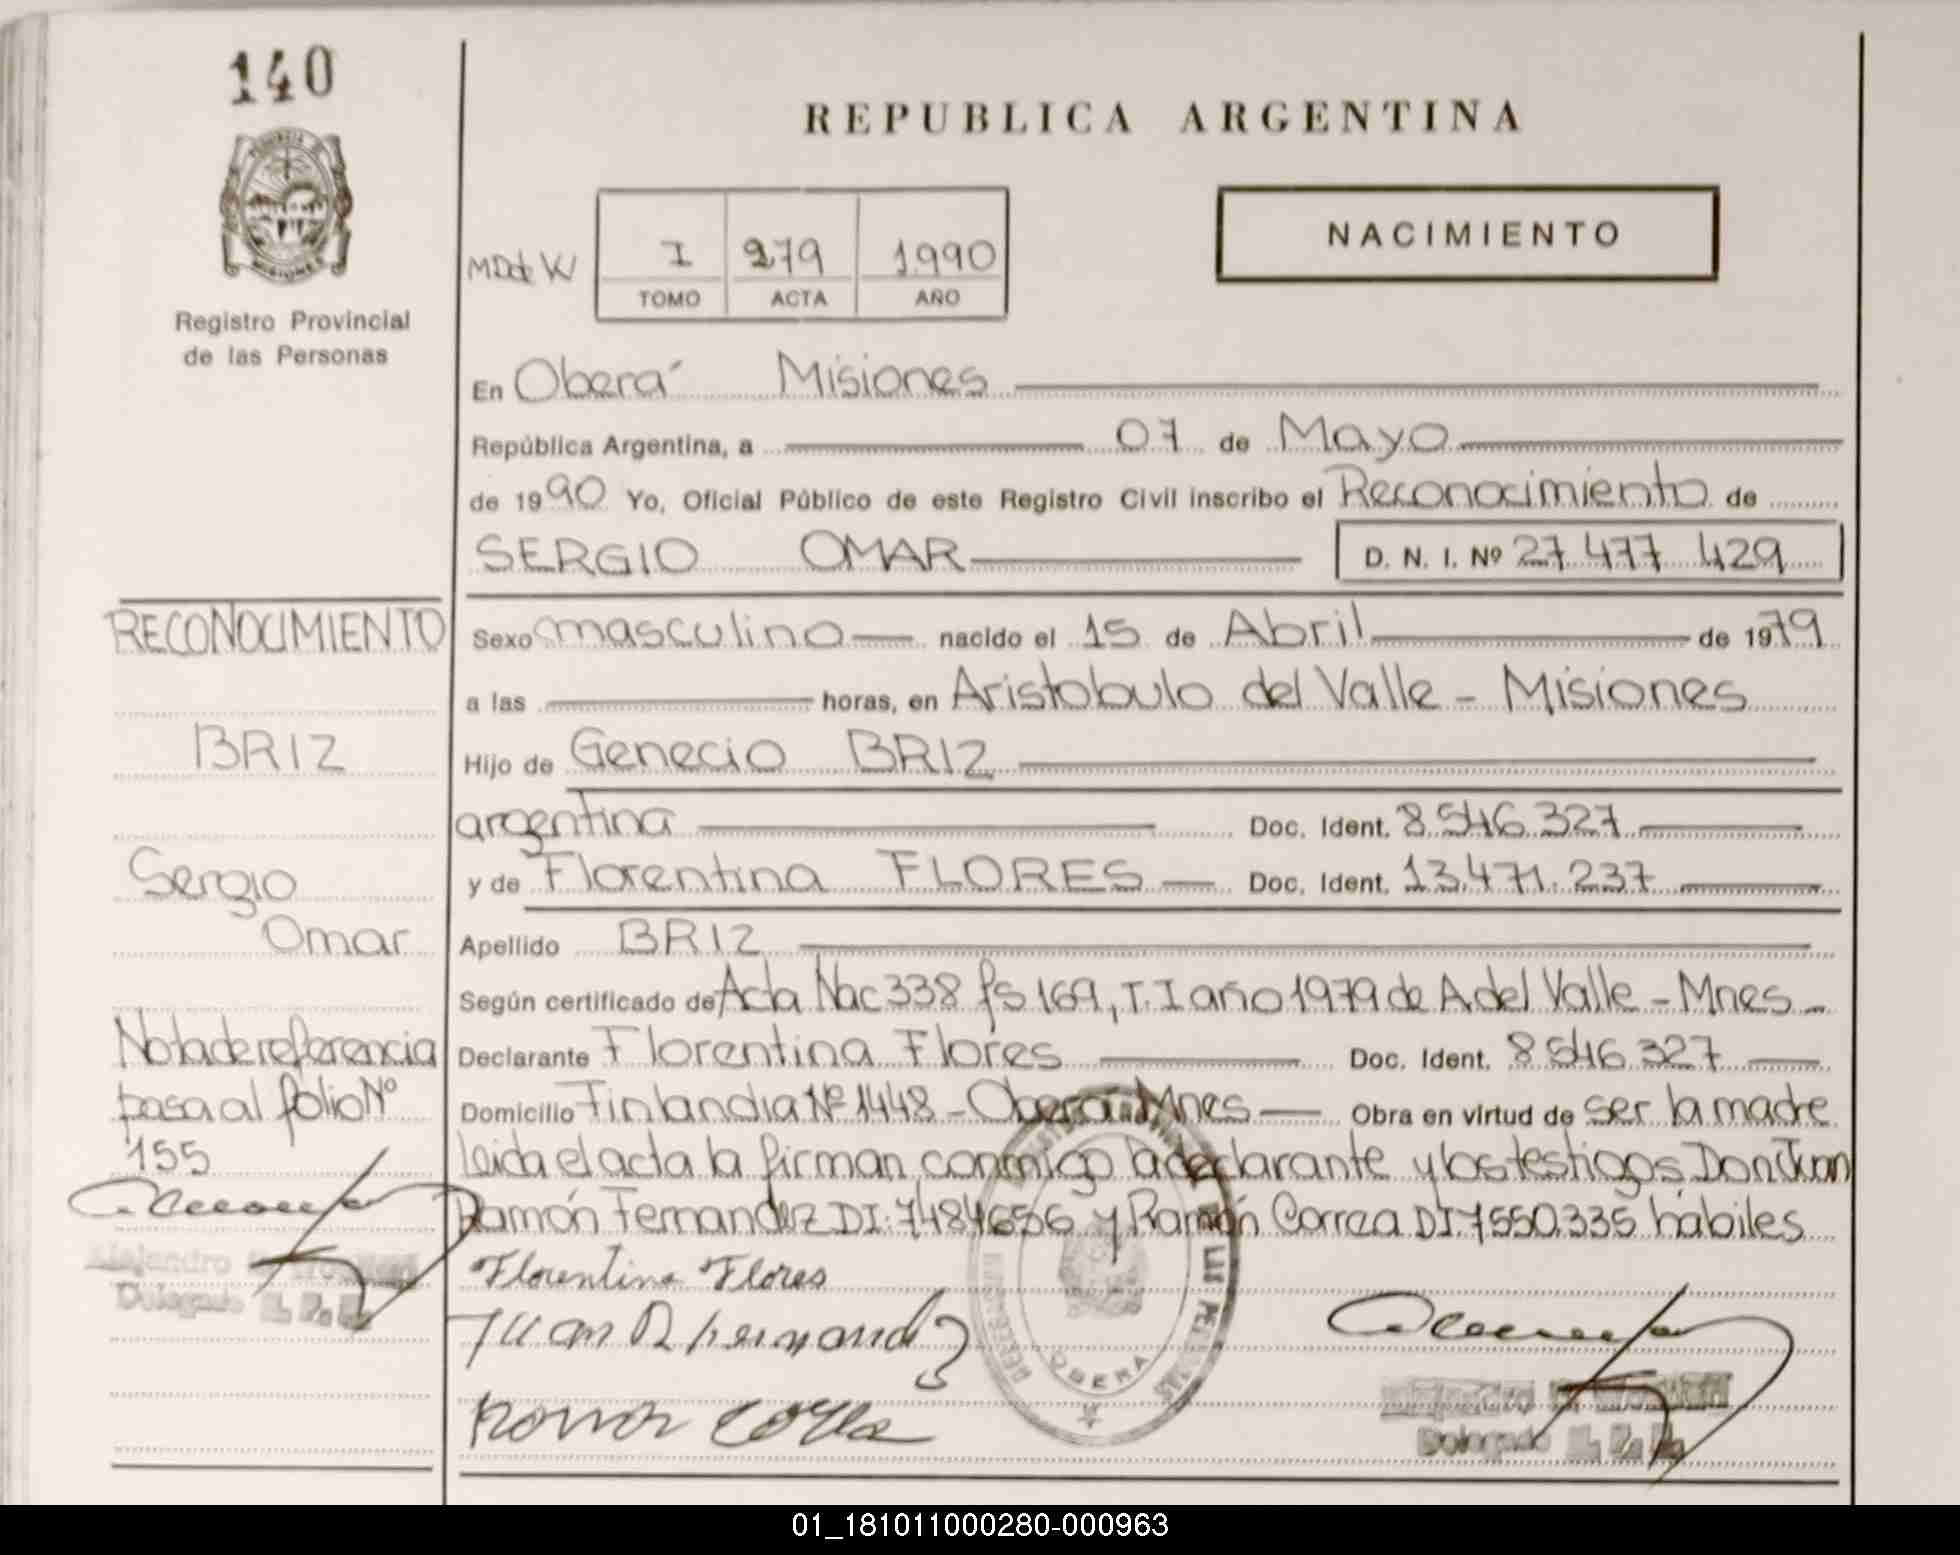 140
REPUBLICA ARGENTINA
NACIMIENTO
MDdeW
I 279 1.990
TOMO ACTA AÑO
Registro Provincial
de las Personas
En Oberá Misiones
República Argentina, a 07 de Mayo
de 1990 Yo, Oficial Público de este Registro Civil inscribo el Reconocimiento de
SERGIO OMAR D. N. I. Nº 27.477.429
RECONOCIMIENTO
Sexo masculino nacido el 15 de Abril de 1979
a las horas, en Aristobulo del Valle - Misiones
BRIZ
Hijo de Genecio BRIZ
argentina Doc. Ident. 8.546.327
Sergio
y de Florentina FLORES Doc. Ident. 13.471.237
Omar
Apellido BRIZ
Según certificado de Acta Nac 338 fs 169, T. I año 1979 de A. del Valle - Mnes -
Nota de referencia
Declarante Florentina Flores Doc. Ident. 8.546.327
pasa al folio Nº
Domicilio Finlandia Nº 1448 - Oberá Mnes Obra en virtud de ser la madre
155
Leida el acta la firman conmigo la declarante y los testigos Don Juan
Ramón Fernandez DI: 7484656 y Ramón Correa DI 7550.335 hábiles
Alejandro
Delegado R. P. P.
Florentina Flores
Juan R Fernandez
Ramon Correa
OBERA
LAS PERSONAS
Delegado R. P. P.
01_181011000280-000963